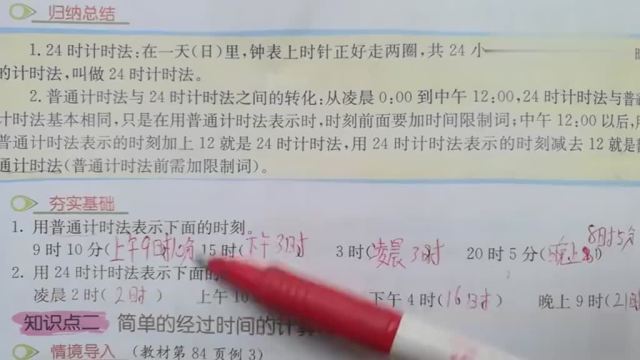 归纳总结
1.24时计时法:在一天(日)里,钟表上时针正好走两圈,共24小
的计时法,叫做24时计时法。
2.普通计时法与24时计时法之间的转化:从凌晨0:00到中午12:00,24时计时法与普
计时法基本相同,只是在用普通计时法表示时,时刻前面要加时间限制词;中午12:00以后,
普通计时法表示的时刻加上12就是24时计时法,用24时计时法表示的时刻减去12就是
通计时法(普通计时法前需加限制词)。
夯实基础
1. 用普通计时法表示下面的时刻。
8时5分
9时10分(上午9时10分 15时(下午3时) 3时(凌晨3时 20时5分(晚上
2. 用24时计时法表示下面的
凌晨2时(2时) 上午10 下午4时(16时) 晚上9时(21时
知识点二 简单的经过时间的计算
情境导入 (教材第84页例3)